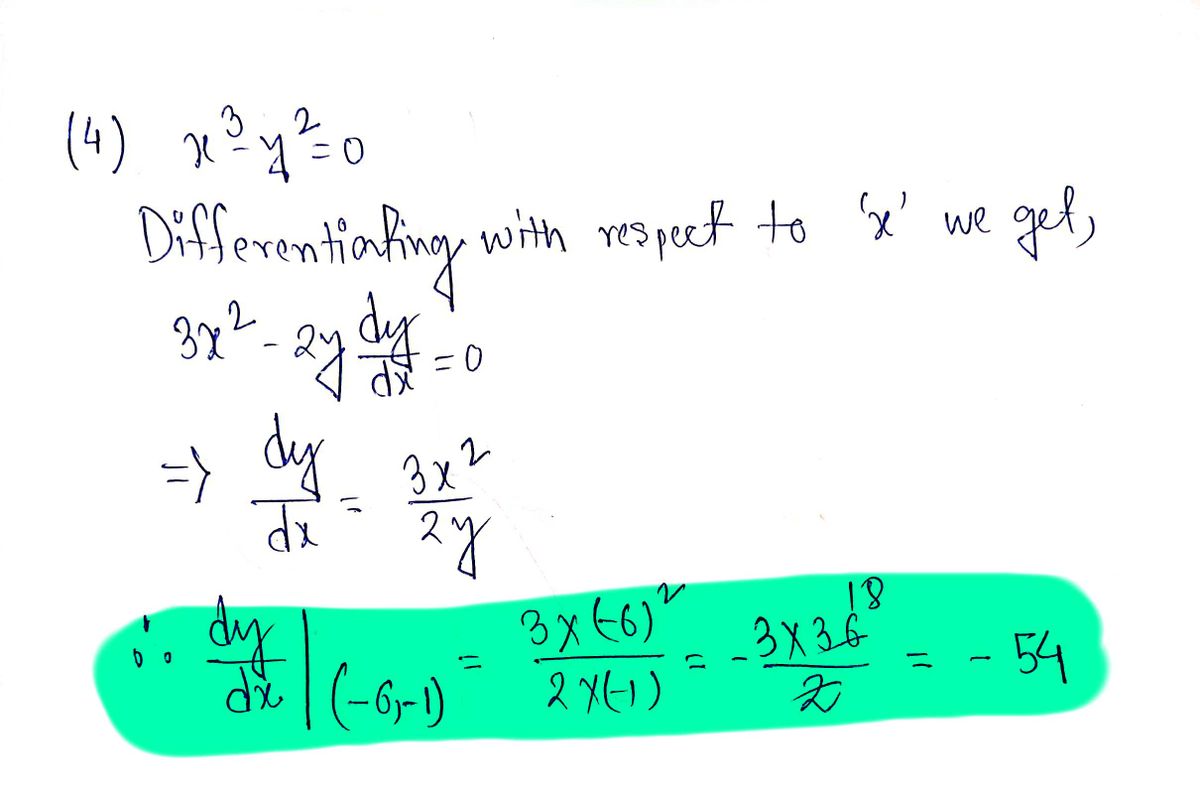 (4) x³ - y² = 0
Differentiating with respect to 'x' we get,
3x² - 2y dy/dx = 0
=> dy/dx = 3x²/2y
∴ dy/dx | (-6,-1) = 3×(-6)²/2×(-1) = - 3×36 18/2 = - 54